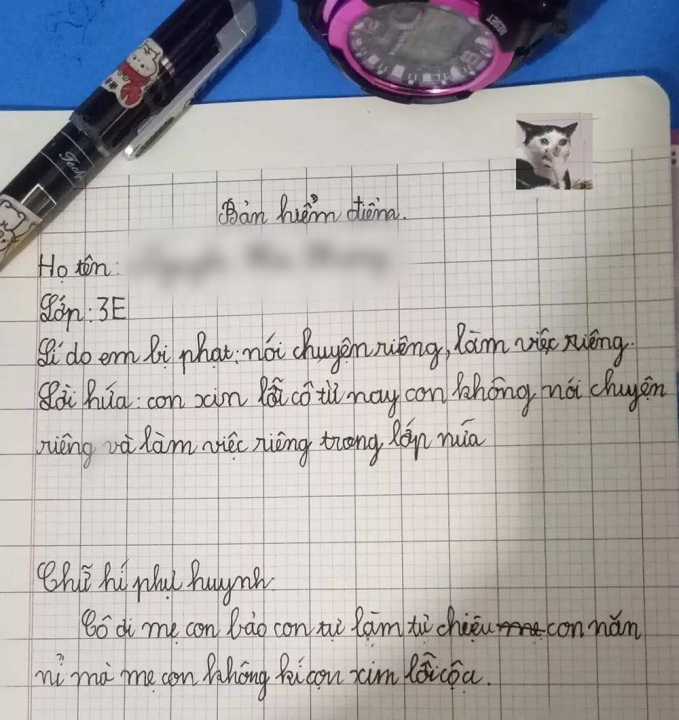 RESET
Bản hiểm điểm.
Họ tên:
Lớp: 3E
Lí do em bị phạt: nói chuyện riêng, làm việc riêng.
Lời hứa: con xin lỗi cô từ nay con không nói chuyện
riêng và làm việc riêng trong lớp nữa
Chữ kí phụ huynh
Cô ơi mẹ con bảo con tự làm tự chiệu mẹ con năn
nỉ mà mẹ con không kí con xin lỗi cộa.